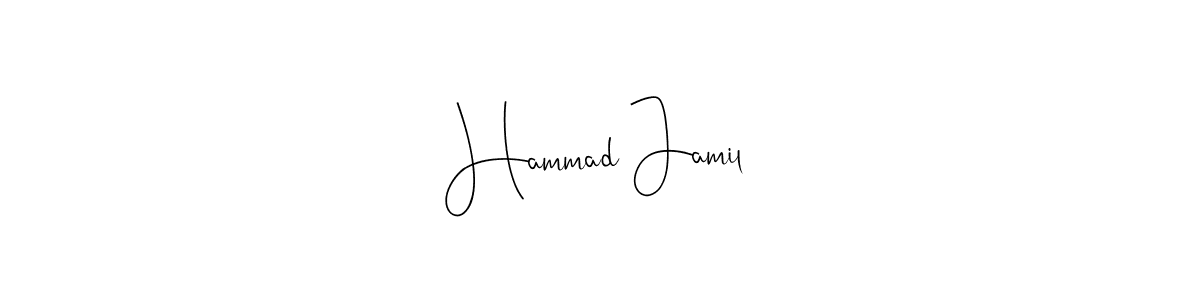 Hammad Jamil